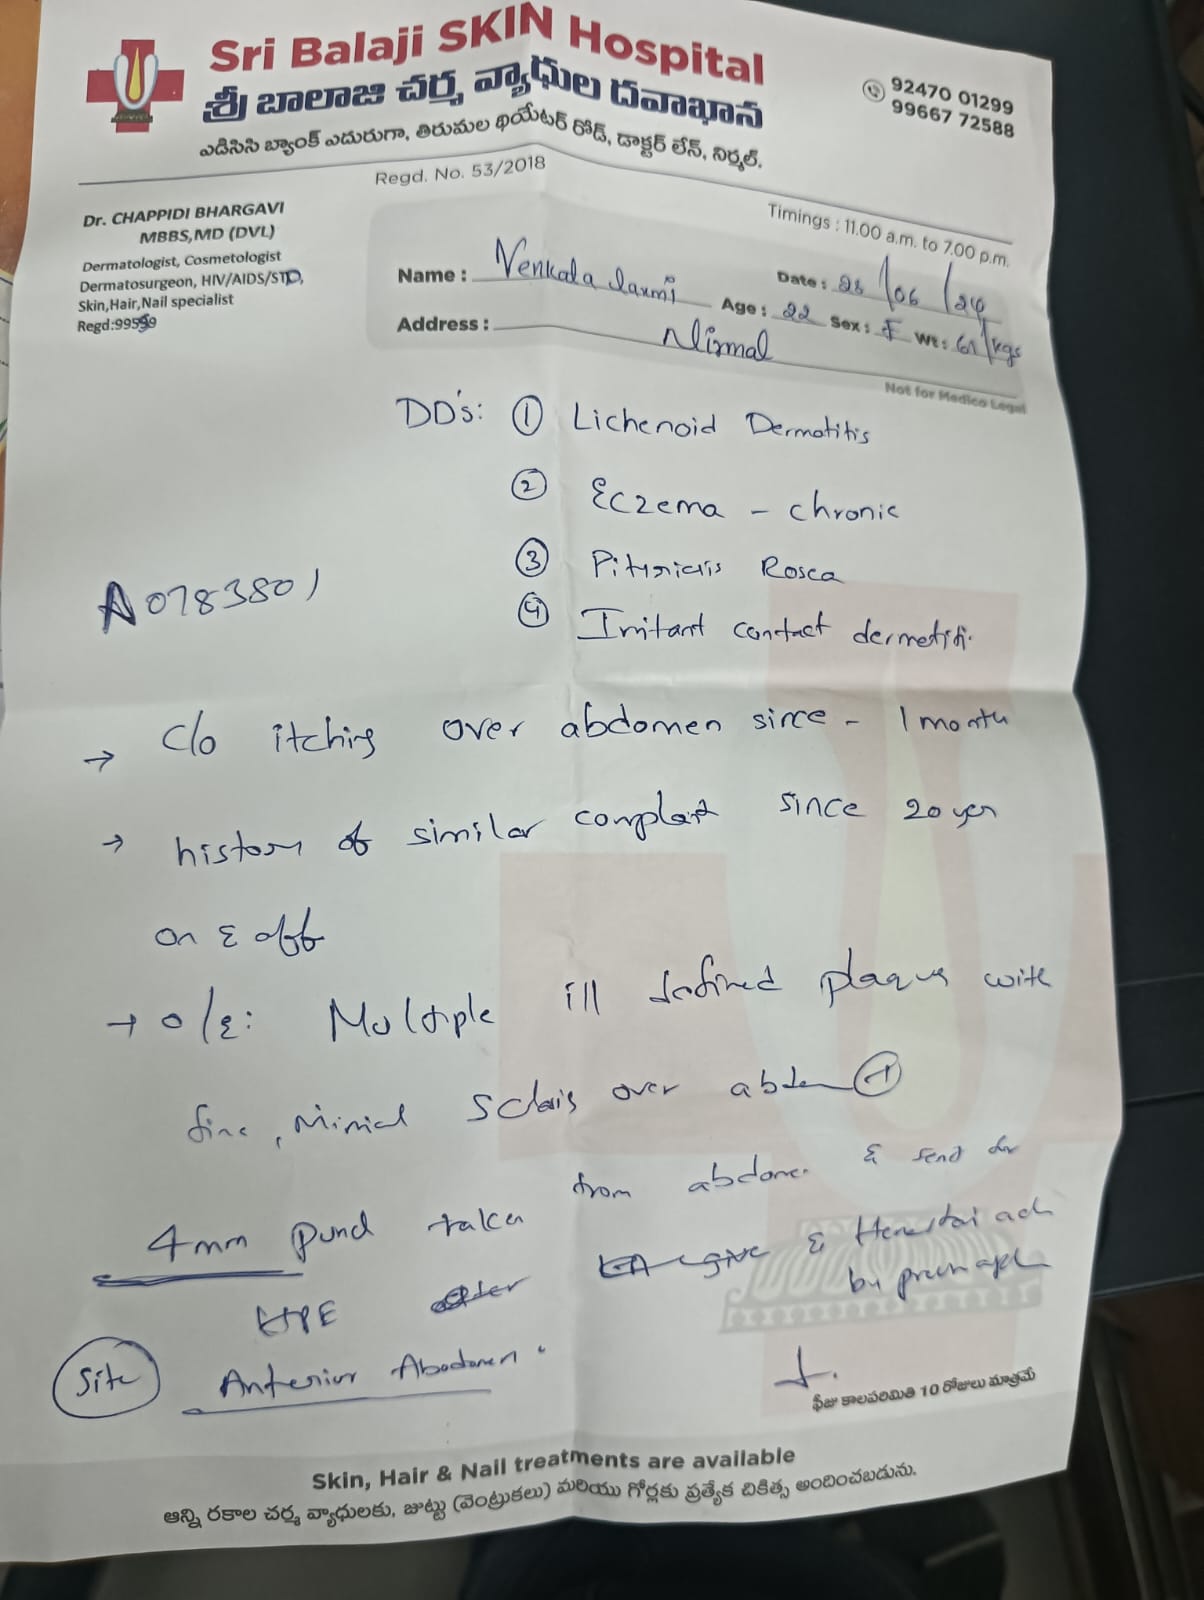 Sri Balaji SKIN Hospital
శ్రీ బాలాజి చర్మ వ్యాధుల దవాఖాన
ఎడిసిసి బ్యాంక్ ఎదురుగా, తిరుమల థియేటర్ రోడ్, డాక్టర్ లేన్, నిర్మల్.
92470 01299
99667 72588
Regd. No. 53/2018
Timings : 11.00 a.m. to 7.00 p.m.
Dr. CHAPPIDI BHARGAVI
MBBS,MD (DVL)
Dermatologist, Cosmetologist
Dermatosurgeon, HIV/AIDS/STD,
Skin,Hair,Nail specialist
Regd:99599
Name : Venkata laxmi Date : 28/06/24
Age : 22 Sex : F Wt : 61/kgs
Address : Nirmal
Not for Medico Legal
DD's: ① Lichenoid Dermatitis
② Eczema - chronic
③ Pityriasis Rosea
④ Irritant contact dermatiti.
A0783801
→ C/o itching over abdomen since - 1 month
→ history of similar complaint since 20 yer
on & off
→ o/e: Multiple ill defined plaque with
fine, minial scales over abdomen +
4mm punch taken from abdomen & send for
HPE & Hematoi ach
Site Anterior Abodomen.
ఫీజు కాలపరిమితి 10 రోజులు మాత్రమే
Skin, Hair & Nail treatments are available
అన్ని రకాల చర్మ వ్యాధులకు, జుట్టు (వెంట్రుకలు) మరియు గోర్లకు ప్రత్యేక చికిత్స అందించబడును.